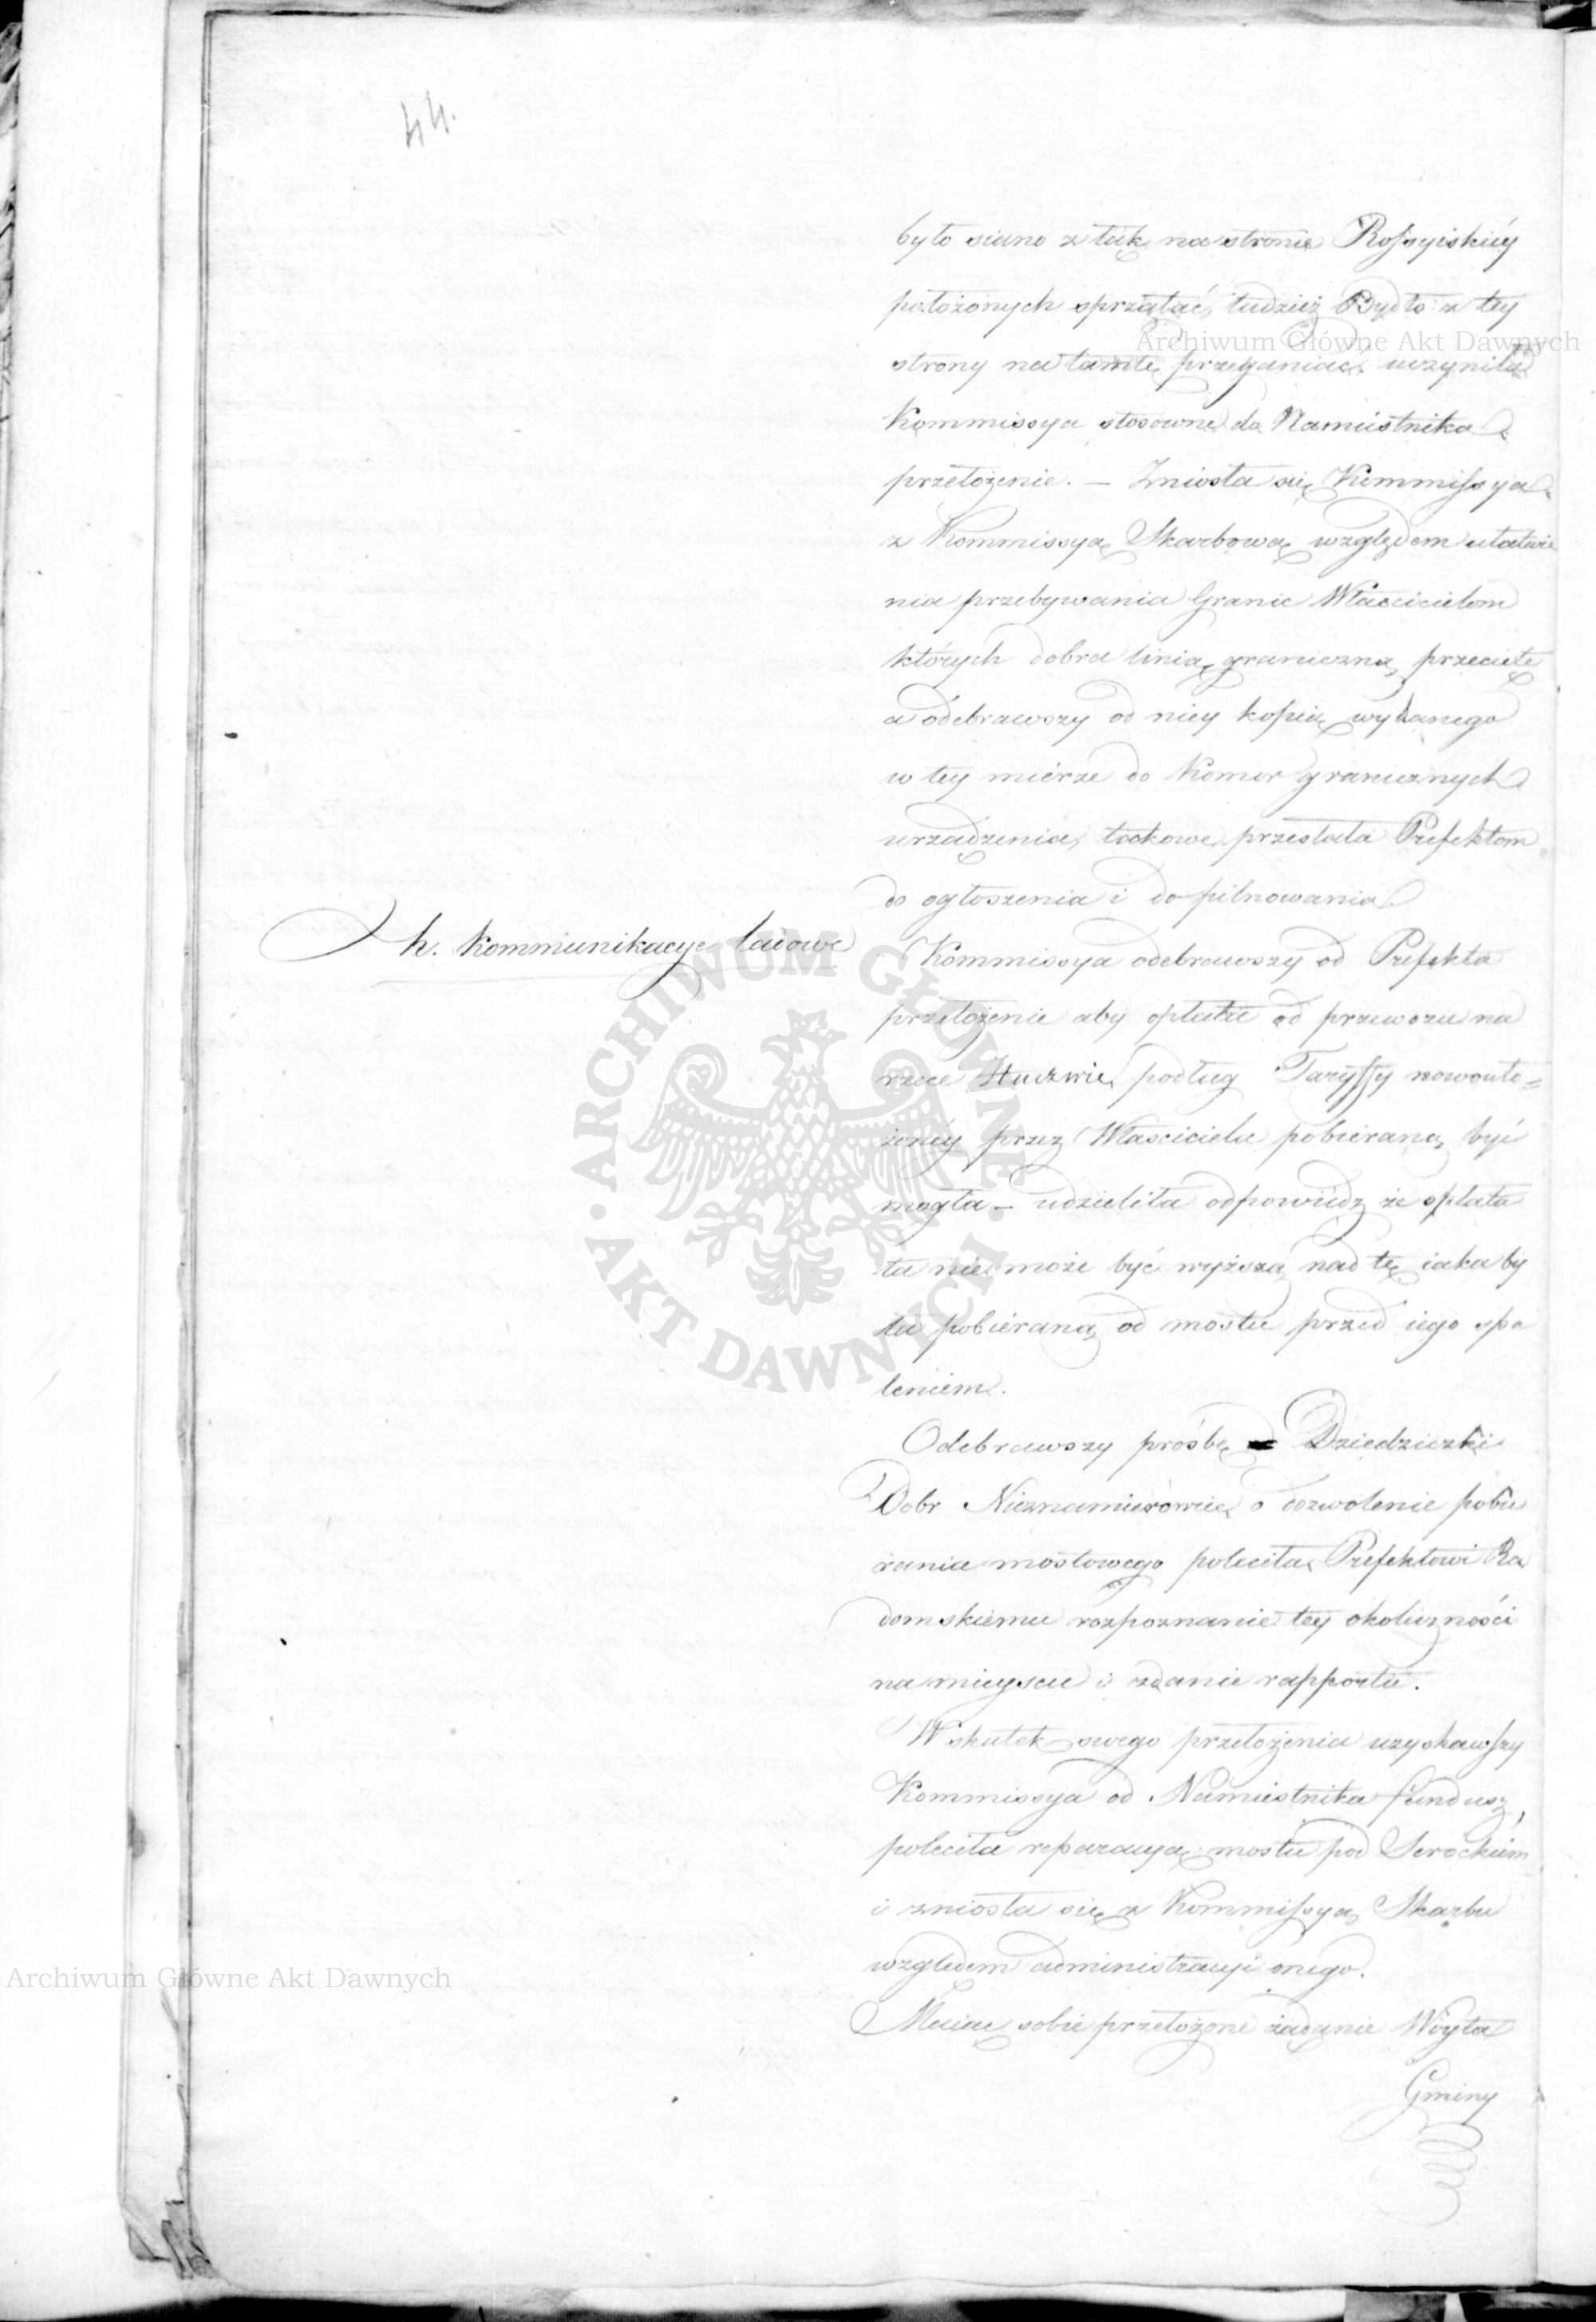 44.
było siano z łąk na stronie Rossyiskiéy
położonych sprzątać, tudzież Bydło z tey
strony na tamtę przeganiać, uczyniła
Kommissya stosowne do Namiestnika
przełożenie. — Zniosła się Kommissya
z Kommissyą Skarbową względem ułatwie
nia przebywania Granic Właścicielom
których dobra linią graniczną przecięte
a odebrawszy od niey kopią wydanego
w tey mierze do Komor granicznych
urządzenia, takowe przesłała Prefektom
do ogłoszenia i dopilnowania
h. Kommunikacye lądowe
Kommissya odebrawszy od Prefekta
przełożenie aby opłata od przewozu na
rzece Huczwie podług Taryffy nowouło=
żonéy przez Właściciela pobieraną być
mogła — udzieliła odpowiedź że opłata
ta nie może być wyższą nad tę iaka by
ła pobieraną od mostu przed iego spa
leniem.
Odebrawszy prośbę Dziedziczki
Dobr Nieznamierowic o dozwolenie pobie
rania mostowego poleciła Prefektowi Ra
domskiemu rozpoznanie tey okoliczności
na mieyscu i zdanie rapportu.
W skutek swego przełożenia uzyskawszy
Kommissya od Namiestnika fundusz,
poleciła reparacyą mostu pod Serockiem
i zniosła się z Kommissyą Skarbu
względem administracyi onego.
Maiąc sobie przełożone żądanie Wóyta
Gminy
Archiwum Główne Akt Dawnych
Archiwum Główne Akt Dawnych
ARCHIWUM GŁÓWNE
AKT DAWNYCH